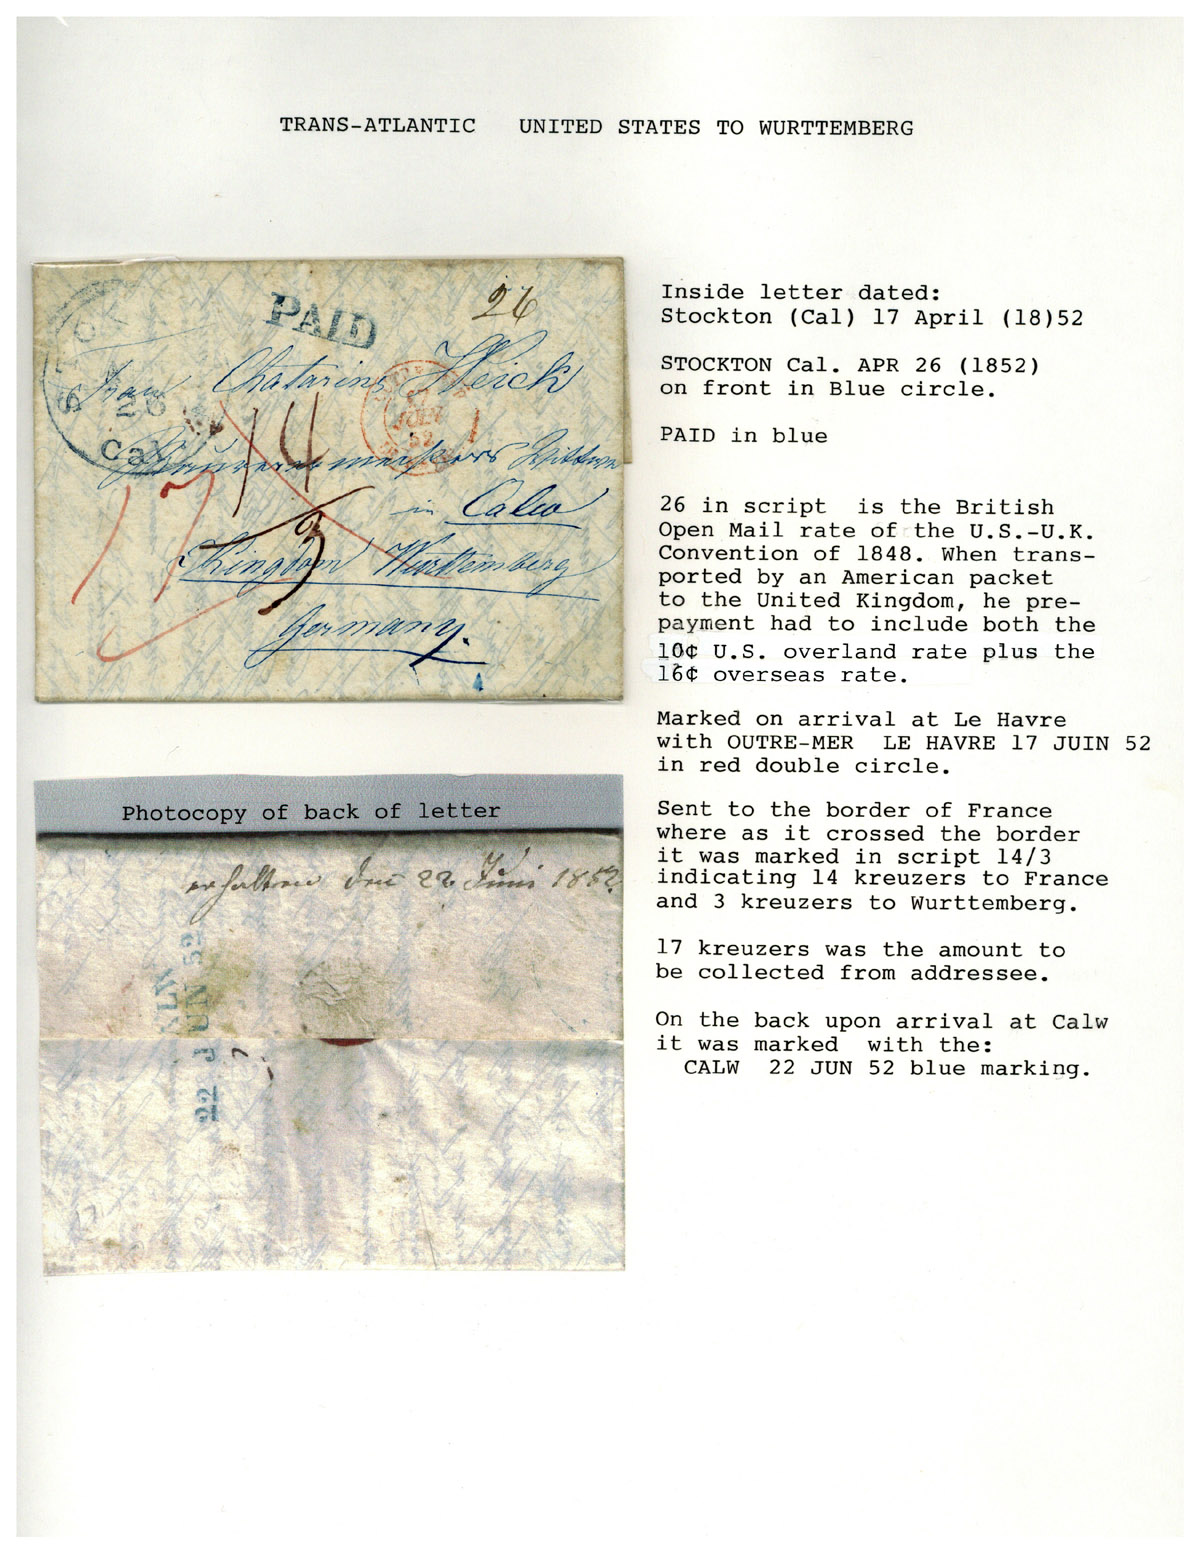 TRANS-ATLANTIC UNITED STATES TO WURTTEMBERG
STOCK
26
Cal
PAID
26
Frau Chatarina Weick
17
JUIN
52
14
3
17
Wittwe
in Calw
Kingdom Württemberg
Germany.
Inside letter dated:
Stockton (Cal) 17 April (18)52
STOCKTON Cal. APR 26 (1852)
on front in Blue circle.
PAID in blue
26 in script is the British
Open Mail rate of the U.S.-U.K.
Convention of 1848. When trans-
ported by an American packet
to the United Kingdom, he pre-
payment had to include both the
10¢ U.S. overland rate plus the
16¢ overseas rate.
Marked on arrival at Le Havre
with OUTRE-MER LE HAVRE 17 JUIN 52
in red double circle.
Sent to the border of France
where as it crossed the border
it was marked in script 14/3
indicating 14 kreuzers to France
and 3 kreuzers to Wurttemberg.
17 kreuzers was the amount to
be collected from addressee.
On the back upon arrival at Calw
it was marked with the:
CALW 22 JUN 52 blue marking.
Photocopy of back of letter
erhalten den 22 Juni 1852
22 JUN 52